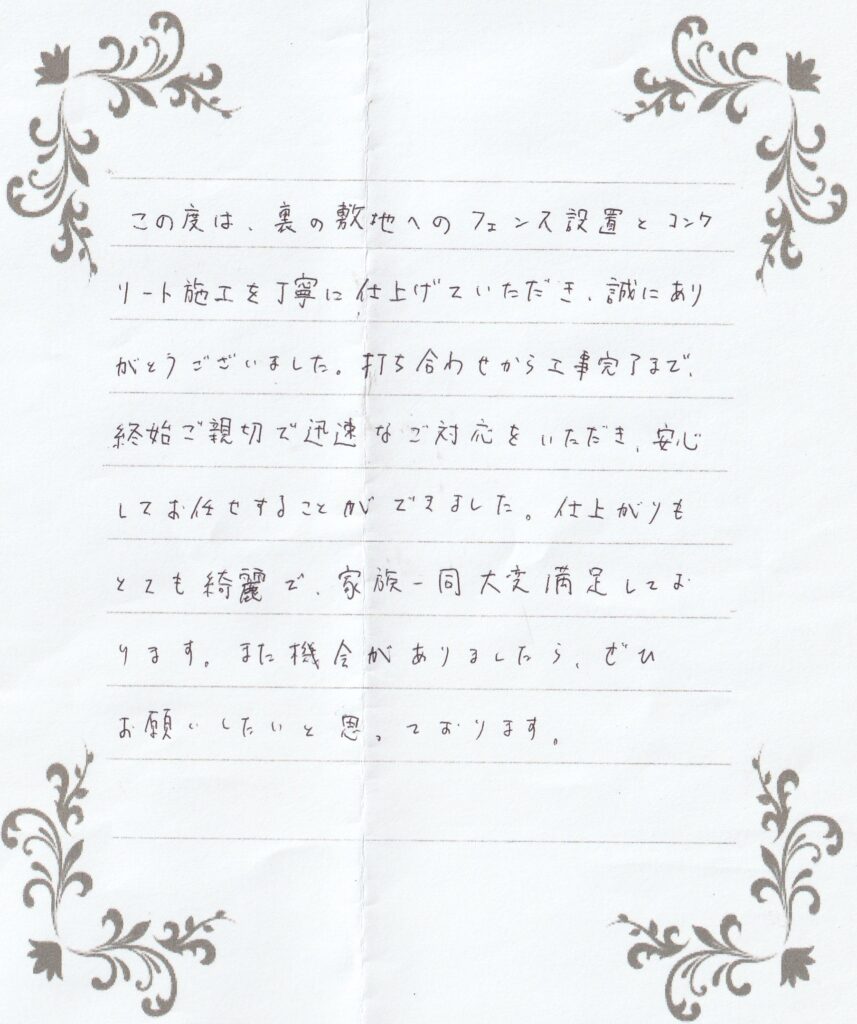 この度は、裏の敷地へのフェンス設置とコンク
リート施工を丁寧に仕上げていただき、誠にあり
がとうございました。打ち合わせから工事完了まで、
終始ご親切で迅速なご対応をいただき、安心
してお任せすることができました。仕上がりも
とても綺麗で、家族一同大変満足してお
ります。また機会がありましたら、ぜひ
お願いしたいと思っております。